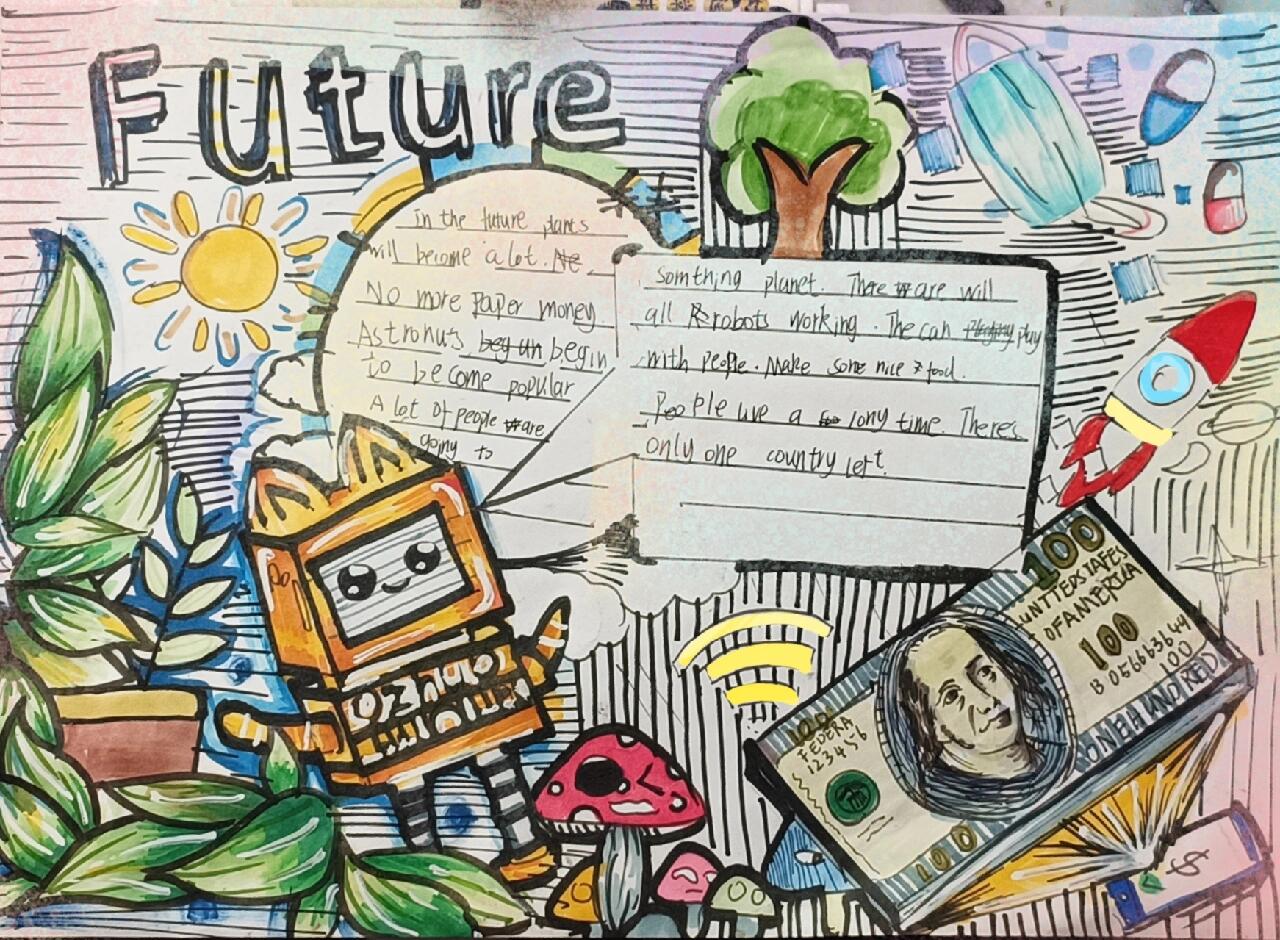 Future
In the future plants
will become a lot. Ne
No more Paper money.
Astronuts beg un begin
to become popular
A lot of people are
going to
Somthing planet. There are will
all robots working. The can play
with people. Make some nice food.
People live a long time. There's
only one country left.
100
UNTTEDSTAFES
OF AMERICA
100
B 05666364
100
ONE HUNDRED
100
FEDERA
S 123456
100
$